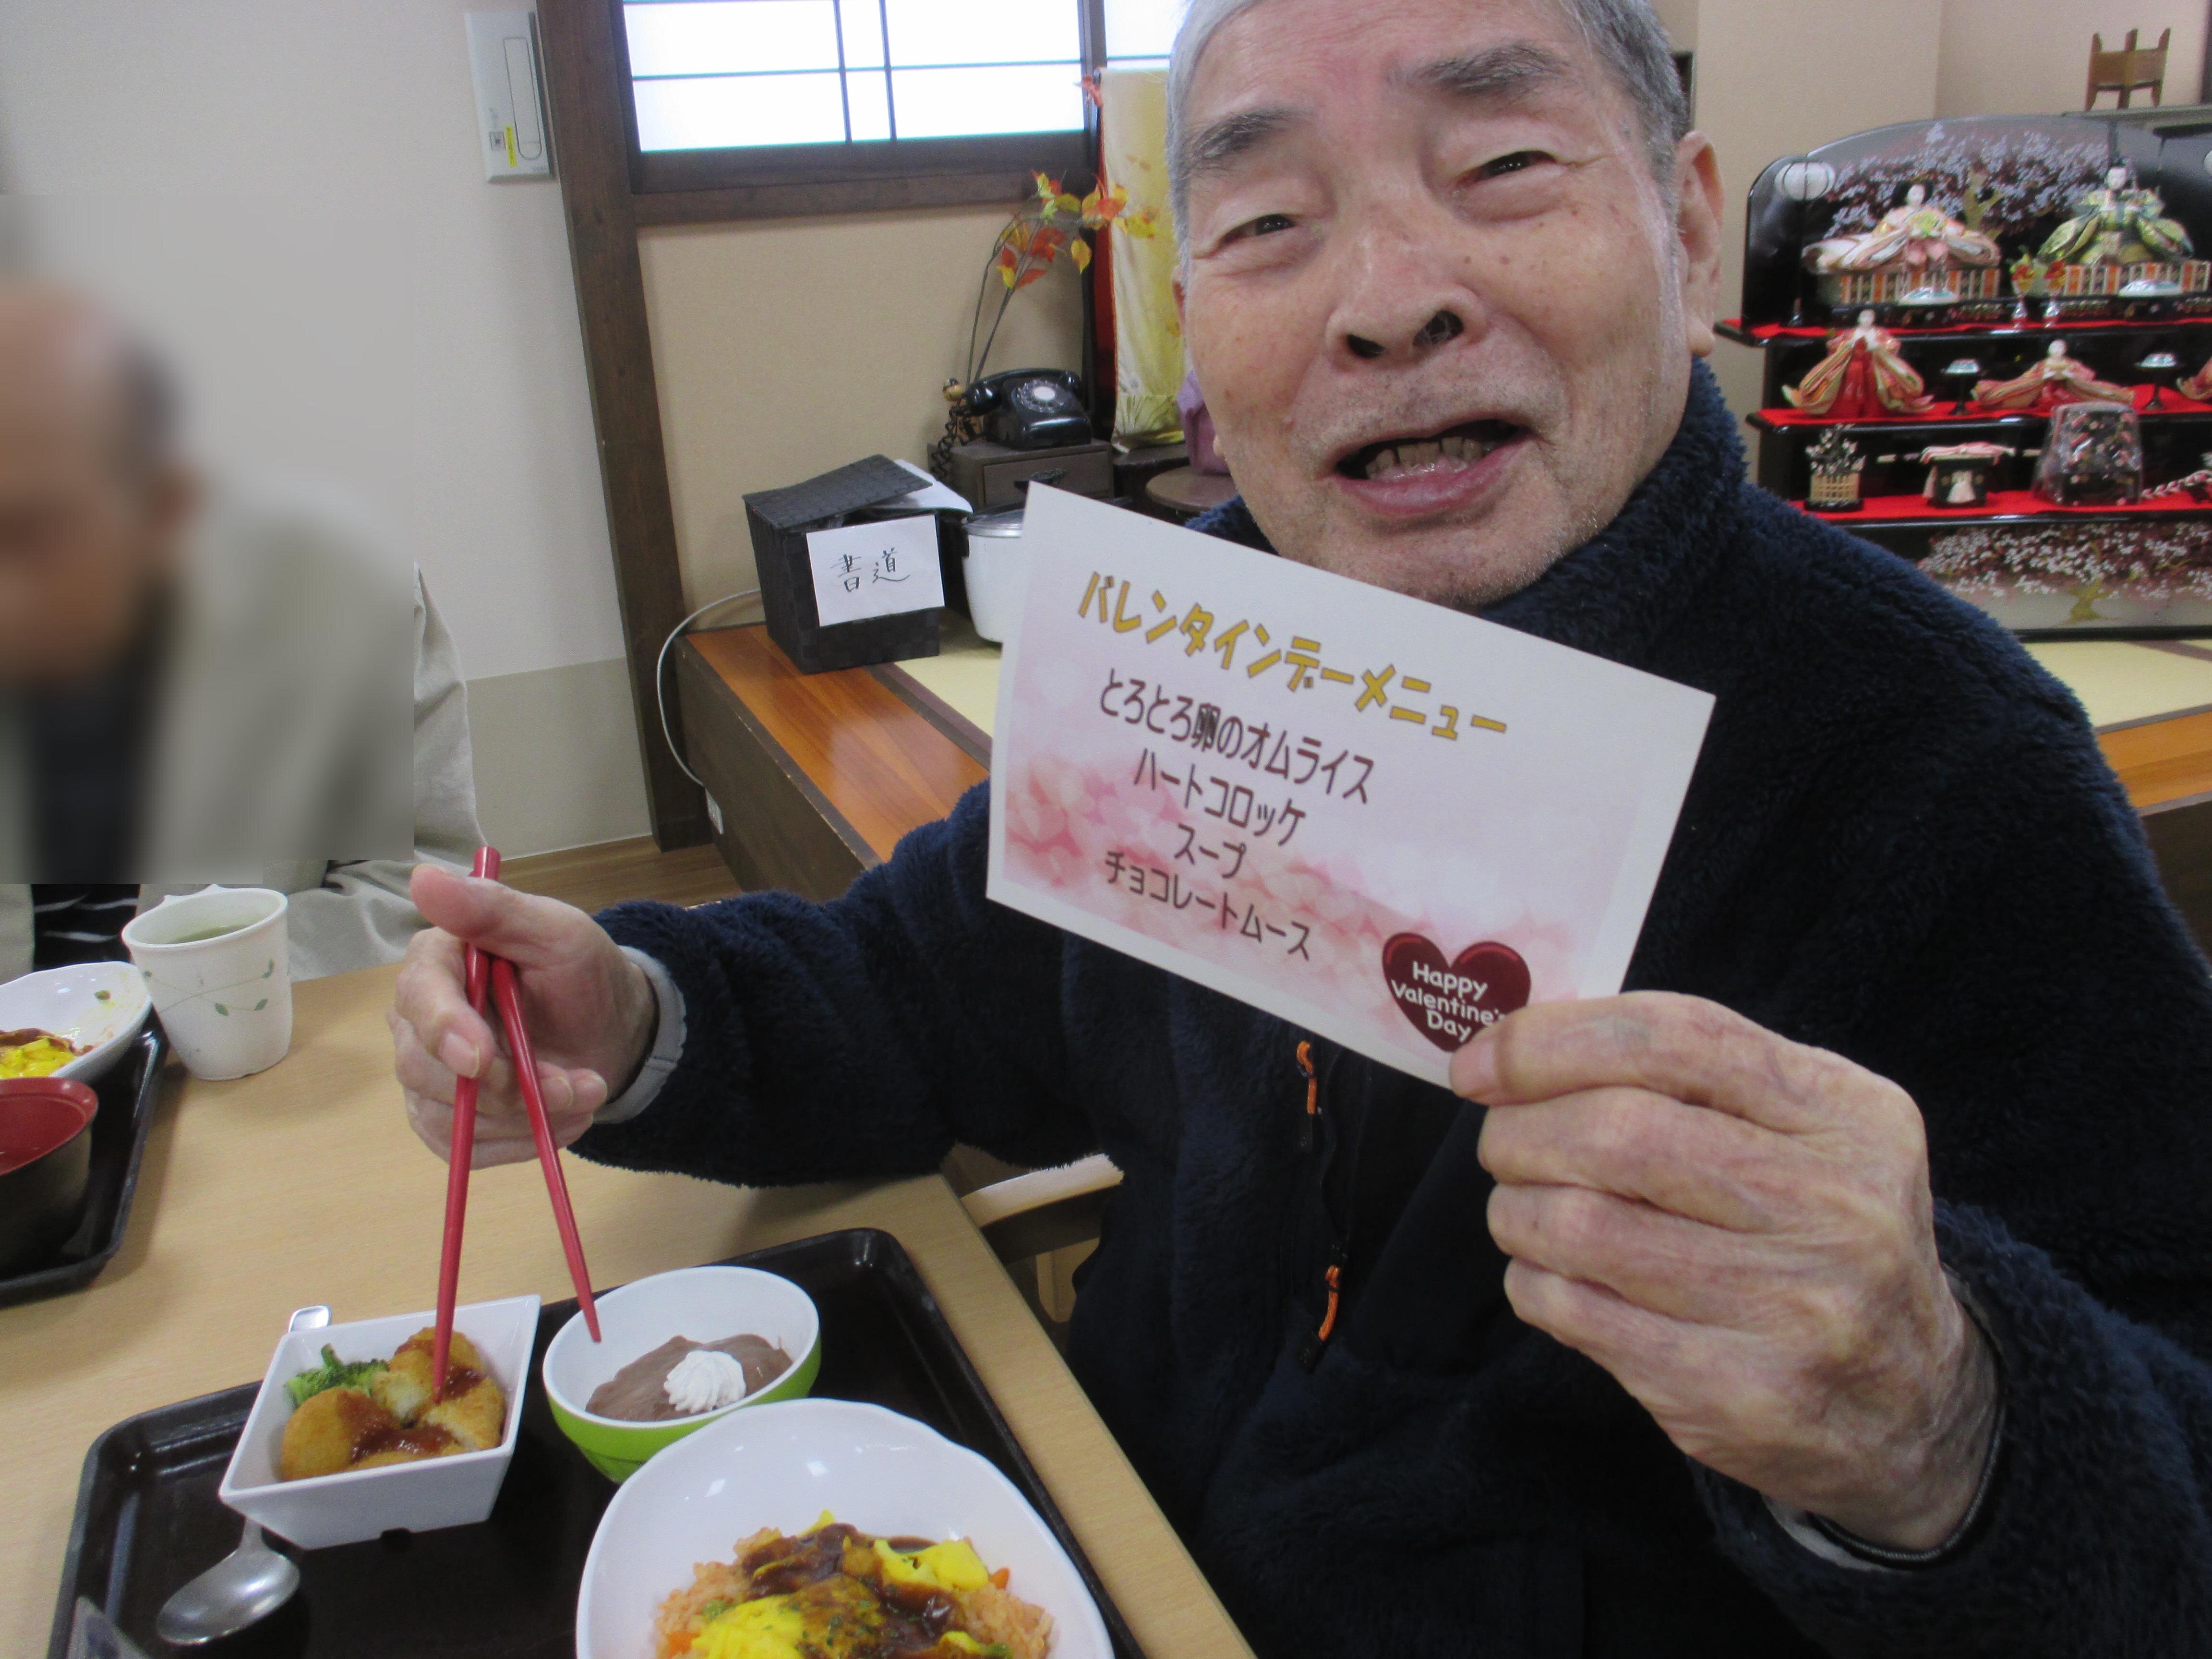 書道
バレンタインデーメニュー
とろとろ卵のオムライス
ハートコロッケ
スープ
チョコレートムース
Happy
Valentine's
Day